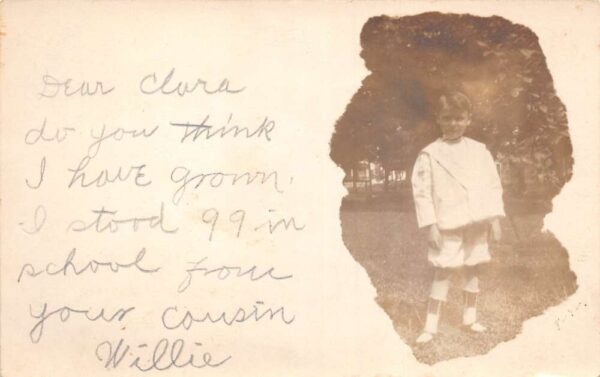 Dear Clara
do you think
I have grown.
I stood 99 in
school from
your cousin
Willie